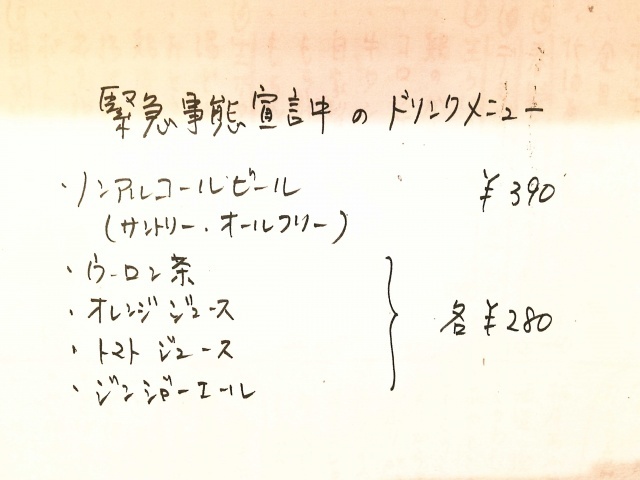 緊急事態宣言中のドリンクメニュー
・ノンアルコールビール ¥390
(サントリー・オールフリー)
・ウーロン茶
・オレンジジュース
・トマトジュース
・ジンジャーエール
各¥280